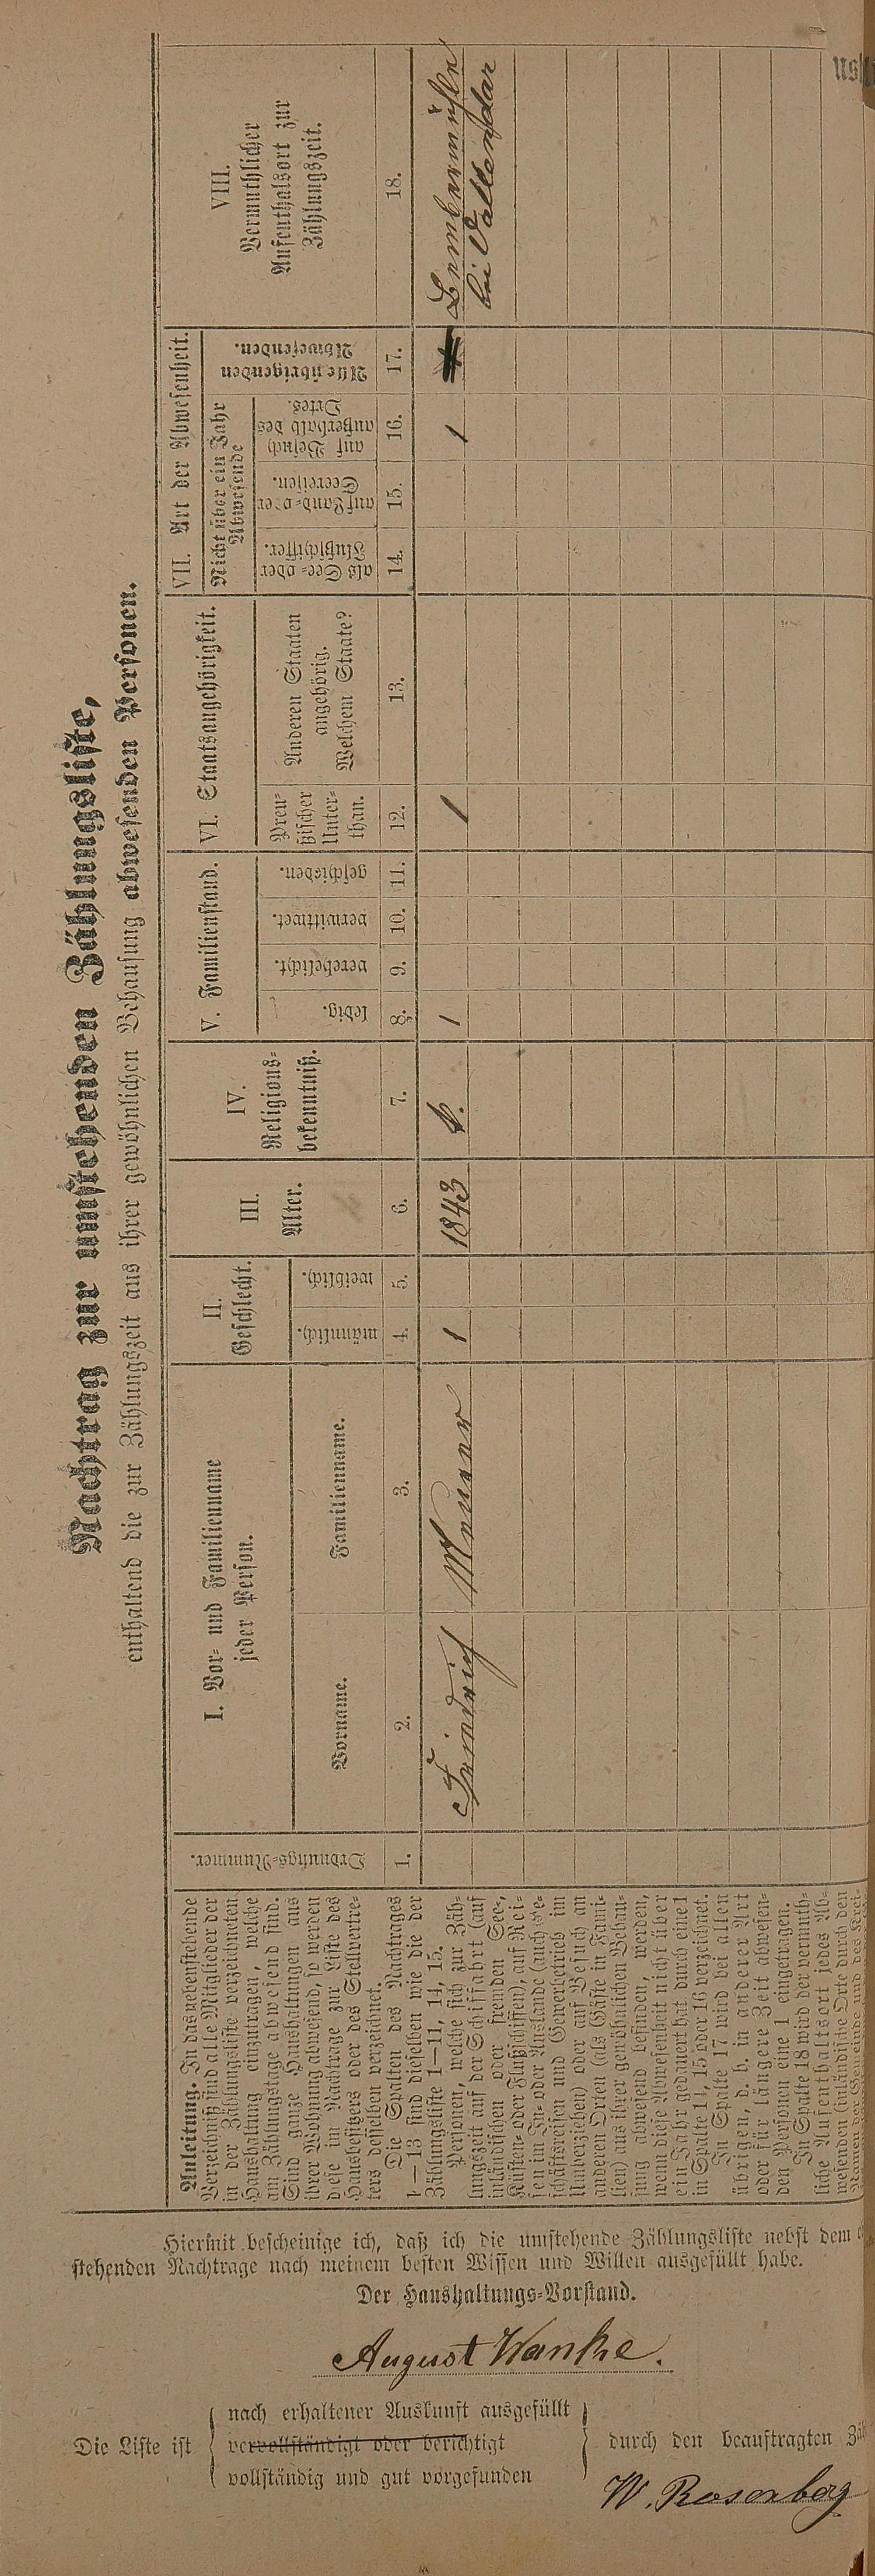 Nachtrag zur umstehenden Zählungsliste,
enthaltend die zur Zählungszeit aus ihrer gewöhnlichen Behausung abwesenden Personen.
Anleitung. In das nebenstehende
Verzeichniß sind alle Mitglieder der
in der Zählungsliste verzeichneten
Haushaltung einzutragen, welche
am Zählungstage abwesend sind.
Sind ganze Haushaltungen aus
ihrer Wohnung abwesend, so werden
diese im Nachtrage zur Liste des
Hausbesitzers oder des Stellvertre-
ters desselben verzeichnet.
Die Spalten des Nachtrages
1—13 sind dieselben wie die der
Zählungsliste 1—11, 14, 15.
Personen, welche sich zur Zäh-
lungszeit auf der Schiffahrt (auf
inländischen oder fremden See-,
Küsten- oder Flußschiffen), auf Rei-
sen im In- oder Auslande (auch Ge-
schäftsreisen und Gewerbetrieb im
Umherziehen) oder auf Besuch an
anderen Orten (als Gäste in Fami-
lien) aus ihrer gewöhnlichen Behau-
sung abwesend befinden, werden,
wenn diese Abwesenheit nicht über
ein Jahr gedauert hat durch eine 1
in Spalte 14, 15 oder 16 verzeichnet.
In Spalte 17 wird bei allen
übrigen, d. h. in anderer Art
oder für längere Zeit abwesen-
den Personen eine 1 eingetragen.
In Spalte 18 wird der vermuth-
liche Aufenthaltsort jedes Ab-
wesenden (inländische Orte durch den
Namen der Gemeinde und des Krei-
Ordnungs-Nummer.
I. Vor- und Familienname
jeder Person.
Vorname.
Familienname.
II.
Geschlecht.
männlich.
weiblich.
III.
Alter.
IV.
Religions-
bekenntniß.
V. Familienstand.
ledig.
verehelicht.
verwittwet.
geschieden.
VI. Staatsangehörigkeit.
Preu-
ßischer
Unter-
than.
Anderen Staaten
angehörig.
Welchem Staate?
VII. Art der Abwesenheit.
Nicht über ein Jahr
Abwesende
als See- oder
Flußschiffer.
auf Land- oder
Seereisen.
auf Besuch
außerhalb des
Ortes.
Alle übrigen
Abwesenden.
VIII.
Vermuthlicher
Aufenthalsort zur
Zählungszeit.
1. 2. 3. 4. 5. 6. 7. 8. 9. 10. 11. 12. 13. 14. 15. 16. 17. 18.
Friedrich Meurer 1 1843 k. 1 1 1 Bembermühle
bei Vallendar
Hiermit bescheinige ich, daß ich die umstehende Zählungsliste nebst dem
stehenden Nachtrage nach meinem besten Wissen und Willen ausgefüllt habe.
Der Haushaltungs-Vorstand.
August Wanke.
Die Liste ist
nach erhaltener Auskunft ausgefüllt
vervollständigt oder berichtigt
vollständig und gut vorgefunden
durch den beauftragten
W. Rosenberg